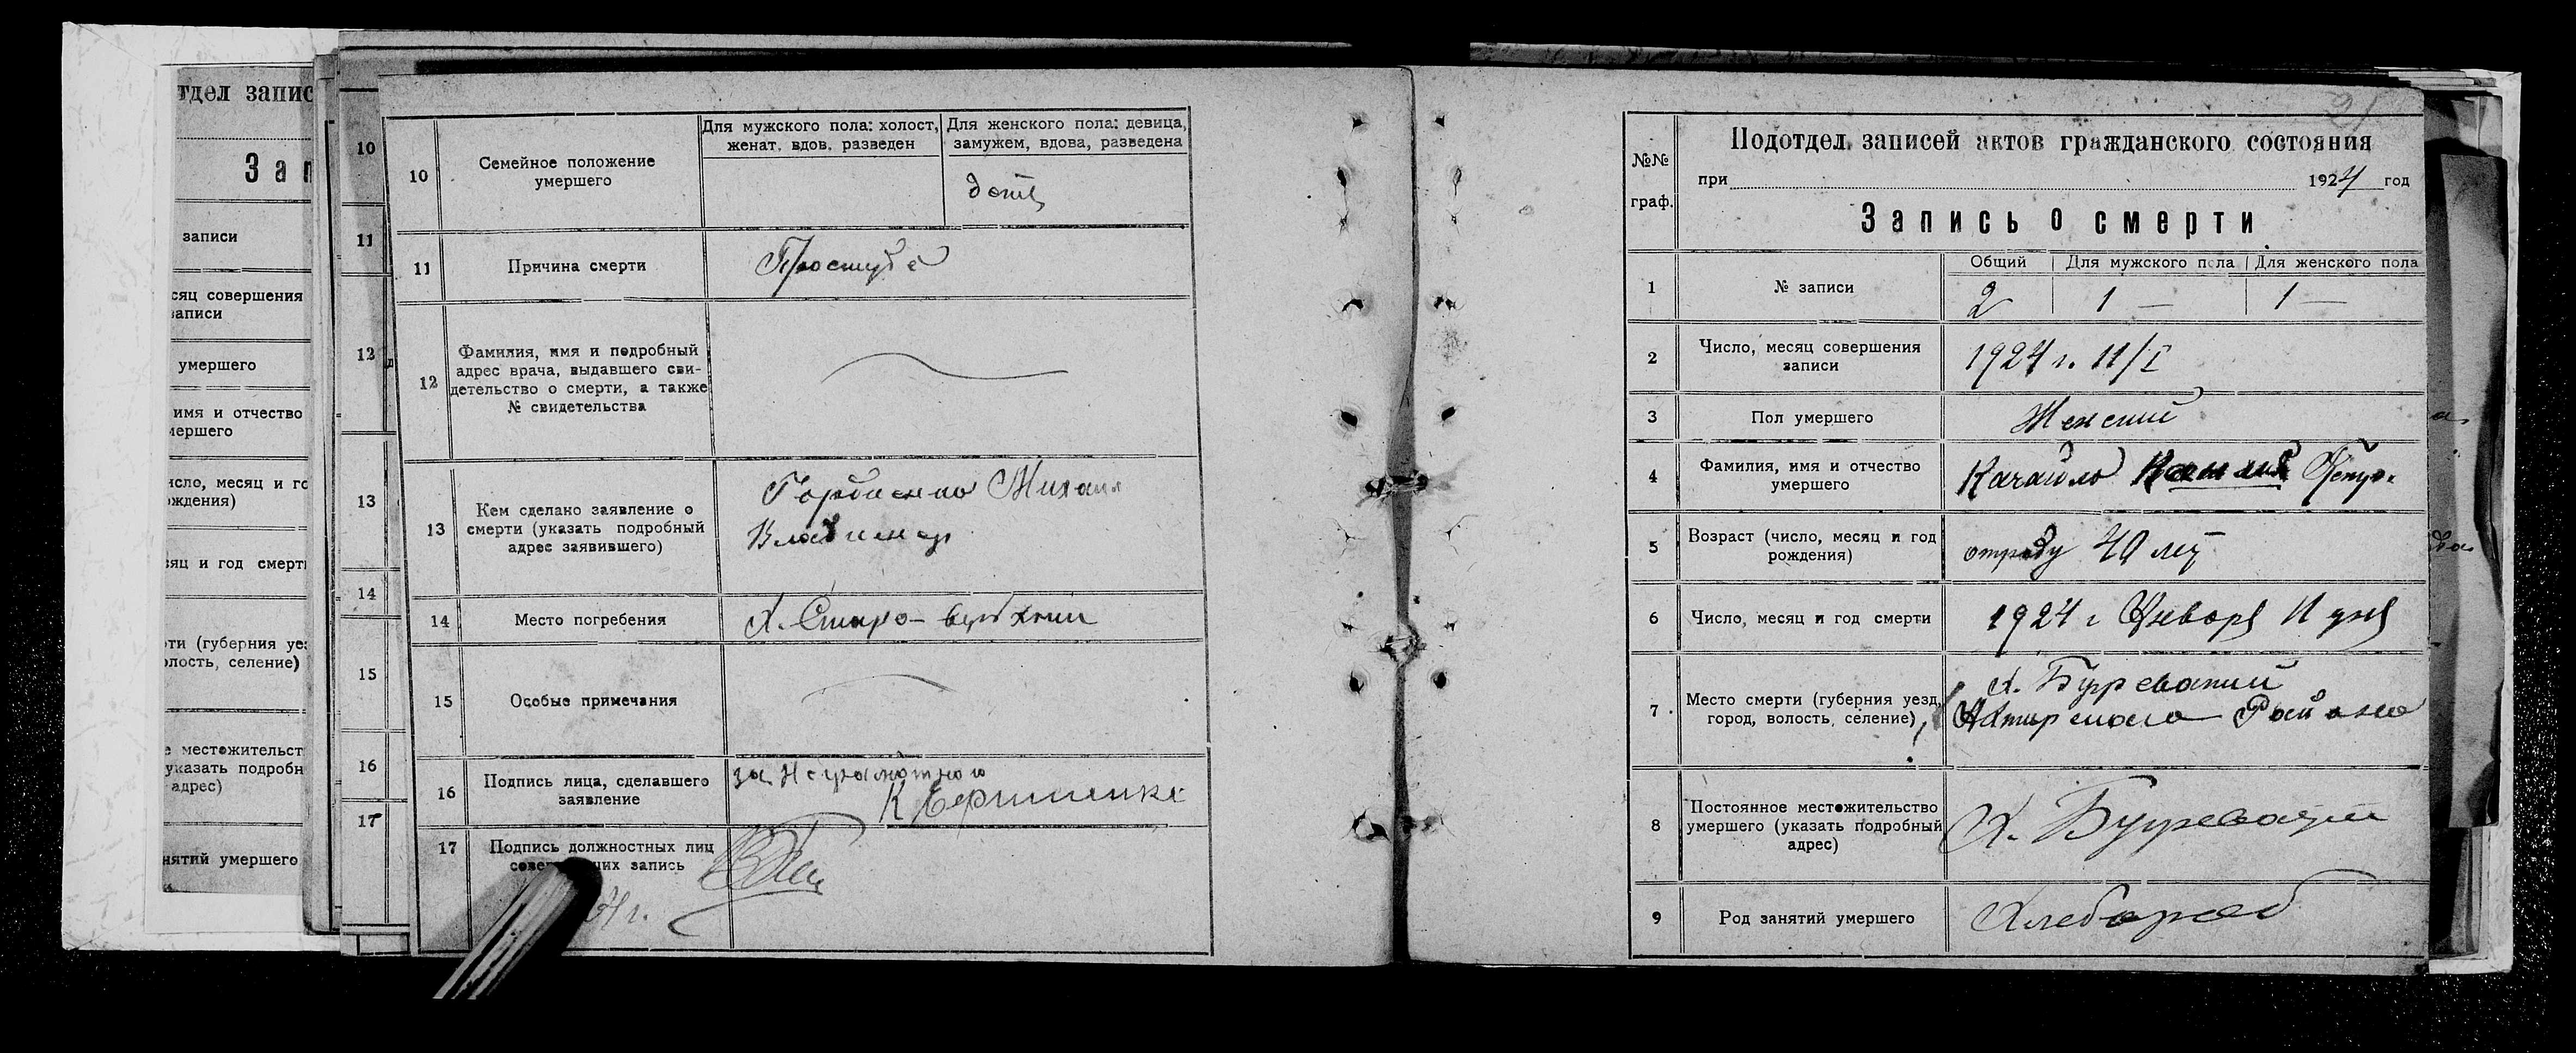 тдел запис
Зап
записи
сяц совершения
записи
умершего
имя и отчество
мершего
исло, месяц и го
ождения)
сяц и год смерт
рти (губерния уез
олость, селение)
е местожительст
указать подробн
адрес)
нятий умершего
10
11
12
13
14
15
16
17
10
Семейное положение
умершего
Для мужского пола: холост,
женат, вдов, разведен
Для женского пола: девица,
замужем, вдова, разведена
11
Причина смерти
Простуда
12
Фамилия, имя и подробный
адрес врача, выдавшего сви-
детельство о смерти, а также
№ свидетельства
13
Кем сделано заявление о
смерти (указать подробный
адрес заявившего)
Горбаенко Михаил
Владимир
14
Место погребения
Х. Старо-
15
Особые примечания
16
Подпись лица, сделавшего
заявление
за неграмотного
К
17
Подпись должностных лиц
сове их запись
№№
граф.
Подотдел записей актов гражданского состояния
при 1924 год
Запись о смерти
1
№ записи
Общий
Для мужского пола
Для женского пола
2
1 —
1 —
2
Число, месяц совершения
записи
1924 г. 11/I
3
Пол умершего
Женский
4
Фамилия, имя и отчество
умершего
Качайло
5
Возраст (число, месяц и год
рождения)
отроду 40 лет
6
Число, месяц и год смерти
1924 г Января 11 дня
7
Место смерти (губерния уезд,
город, волость, селение)
х.
Района
8
Постоянное местожительство
умершего (указать подробный
адрес)
Х.
9
Род занятий умершего
Хлебороб